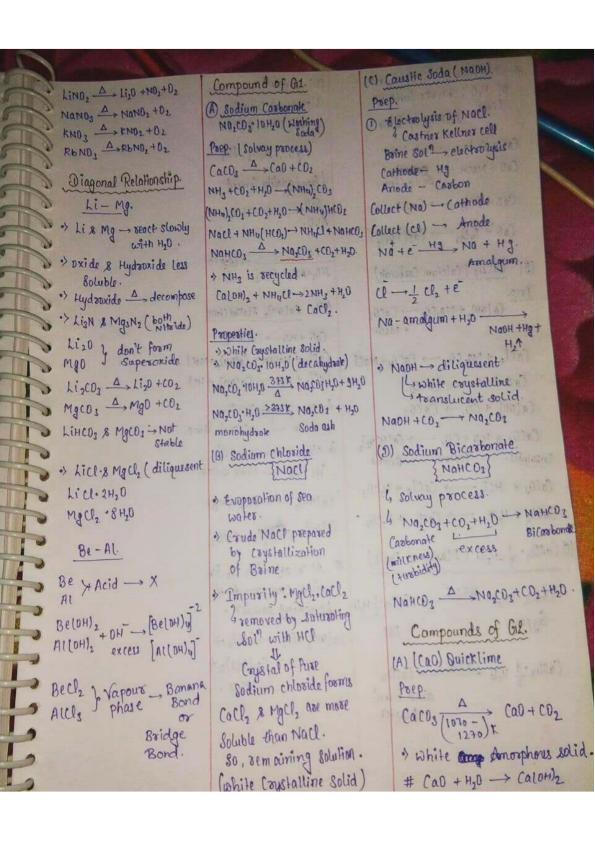 LiNO₂ —Δ→ Li₂O + NO₂ + O₂
NaNO₃ —Δ→ NaNO₂ + O₂
KNO₃ —Δ→ KNO₂ + O₂
RbNO₃ —Δ→ RbNO₂ + O₂
Diagonal Relationship
Li – Mg.
→ Li & Mg → react slowly
with H₂O.
→ Oxide & Hydroxide less
Soluble.
→ Hydroxide —Δ→ decompose
→ Li₃N & Mg₃N₂ (both
Nitride)
Li₂O
MgO } don't form
superoxide
Li₂CO₃ —Δ→ Li₂O + CO₂
MgCO₃ —Δ→ MgO + CO₂
LiHCO₃ & MgCO₃ → Not
Stable
→ LiCl & MgCl₂ (diliquesent
LiCl·2H₂O
MgCl₂·8H₂O
Be – Al.
Be
Al > Acid → X
Be(OH)₂
Al(OH)₂ + OH⁻ → [Be(OH)₄]⁻²
excess [Al(OH)₄]⁻
BeCl₂
AlCl₃ } Vapour → Banana
phase Bond
or
Bridge
Bond.
Compound of G1.
(A) Sodium Carbonate
Na₂CO₃·10H₂O (Washing
Soda)
Prep. (Solvay process)
CaCO₃ —Δ→ CaO + CO₂
NH₃ + CO₂ + H₂O → (NH₄)₂CO₃
(NH₄)₂CO₃ + CO₂ + H₂O → (NH₄)HCO₃
NaCl + NH₄(HCO₃) → NH₄Cl + NaHCO₃
NaHCO₃ —Δ→ Na₂CO₃ + CO₂ + H₂O.
→ NH₃ is recycled.
Ca(OH)₂ + NH₄Cl → 2NH₃ + H₂O
+ CaCl₂.
Properties.
→ White Crystalline Solid.
→ Na₂CO₃·10H₂O (decahydrate)
Na₂CO₃·10H₂O —373K/Δ→ Na₂CO₃·H₂O + 9H₂O
Na₂CO₃·H₂O —>373K→ Na₂CO₃ + H₂O
monohydrate Soda ash
(B) Sodium Chloride
[NaCl]
→ Evaporation of sea
water.
→ Crude NaCl prepared
by Crystallization
of Brine.
→ Impurity: MgCl₂, CaCl₂
↳ removed by saturating
Solⁿ with HCl
⇓
Crystal of Pure
Sodium chloride forms
CaCl₂ & MgCl₂ are more
Soluble than NaCl.
So, remaining solution.
(white Crystalline Solid)
(C) Caustic Soda (NaOH).
Prep.
① Electrolysis of NaCl.
↳ Castner Kellner cell
Brine Solⁿ → electrolysis
Cathode – Hg
Anode – Carbon
Collect (Na) → Cathode
Collect (Cl) → Anode
Na⁺ + e⁻ —Hg→ Na + Hg.
Amalgum.
Cl⁻ → ½ Cl₂ + e⁻
Na – amalgum + H₂O →
NaOH + Hg +
H₂↑
→ NaOH → diliquesent
↳ White crystalline
translucent solid.
NaOH + CO₂ → Na₂CO₃
(D) Sodium Bicarbonate
{NaHCO₃}
↳ Solvay process.
↳ Na₂CO₃ + CO₂ + H₂O → NaHCO₃
Carbonate excess Bicarbonate
(milkness)
(turbidity)
NaHCO₃ —Δ→ Na₂CO₃ + CO₂ + H₂O.
Compounds of G2.
(A) (CaO) Quicklime
Prep.
CaCO₃ —Δ→ CaO + CO₂
(1070 –
1270) K
→ White Amorphous solid.
# CaO + H₂O → Ca(OH)₂